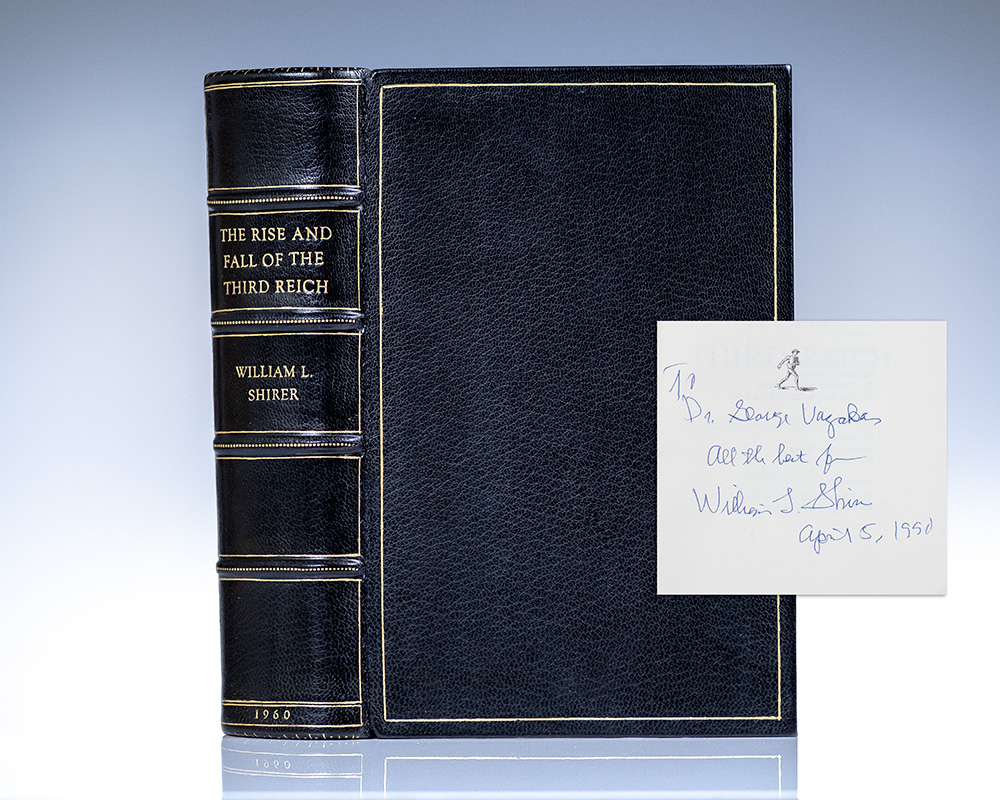 THE RISE AND
FALL OF THE
THIRD REICH
WILLIAM L.
SHIRER
1960
To
Dr. George Vagakas
All the best from
William L. Shirer
April 5, 1990